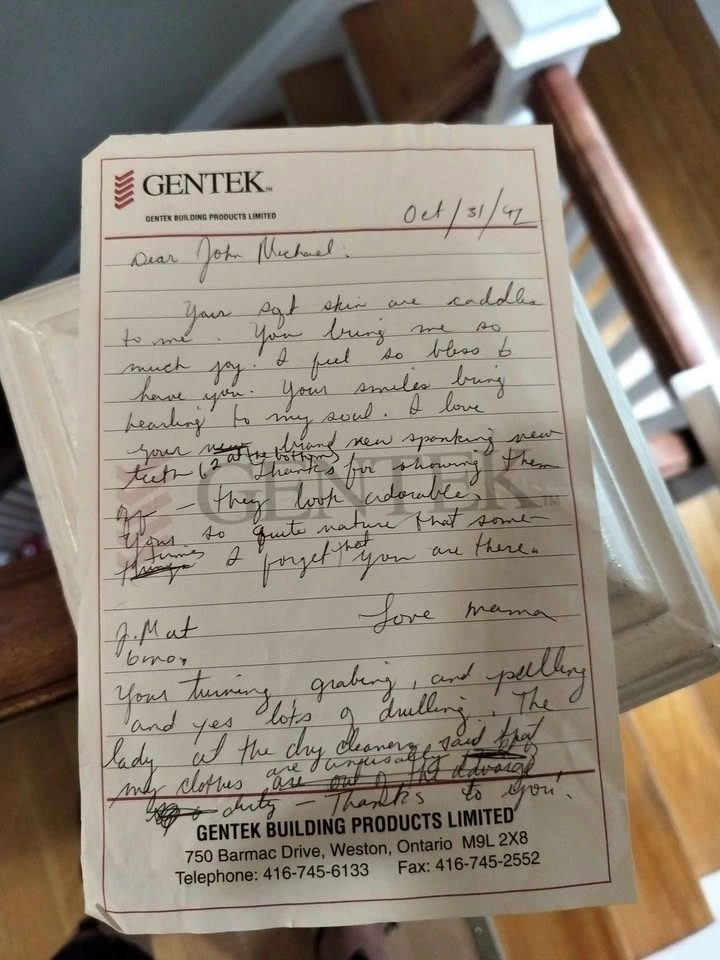 GENTEK™
GENTEK BUILDING PRODUCTS LIMITED
Oct/31/92
Dear John Michael.
Your soft skin are caddles
to me. You bring me so
much joy. I feel so bless to
have you. Your smiles bring
hearling to my soul. I love
your brand new sponking new
teeth (2 at the bottom) Thanks for showing them
off – they look adorable,
Your so quite nature that some-
times I forget that you are there.
Love mama
J.M at
6mo.
Your turning, grabing, and pulling
and yes lots of drulling. The
lady at the dry cleaners said that
my clothes are unusally
duty – Thanks to you!
GENTEK™
GENTEK BUILDING PRODUCTS LIMITED
750 Barmac Drive, Weston, Ontario M9L 2X8
Telephone: 416-745-6133 Fax: 416-745-2552